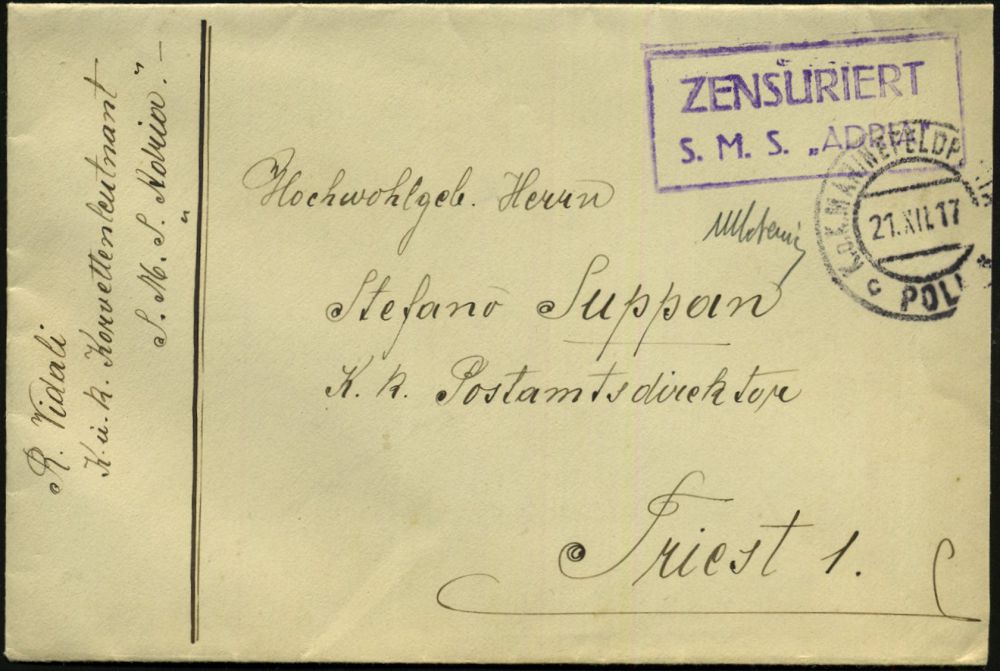 ZENSURIERT
S. M. S. „ADRIA"
K.u.K. MARINEFELDPOSTA
21.XII.17
c POLA *
Hochwohlgeb. Herrn
Stefano Suppan
K. k. Postamtsdirektor
Triest 1.
R. Vidali
K. u. k. Korvettenleutnant
S. M. S. „Adria".—